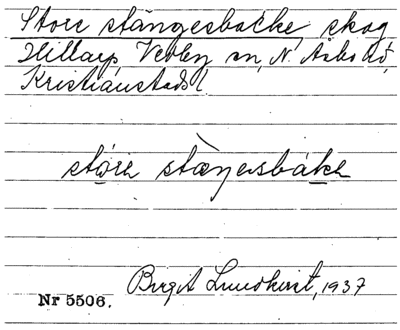 Store stångesbacke, skog
Hillarp Verby sn, N. Åsbo hd,
Kristianstads l.
stórə stæŋəsbákə
Birgit Lundkvist, 1937
Nr 5506.